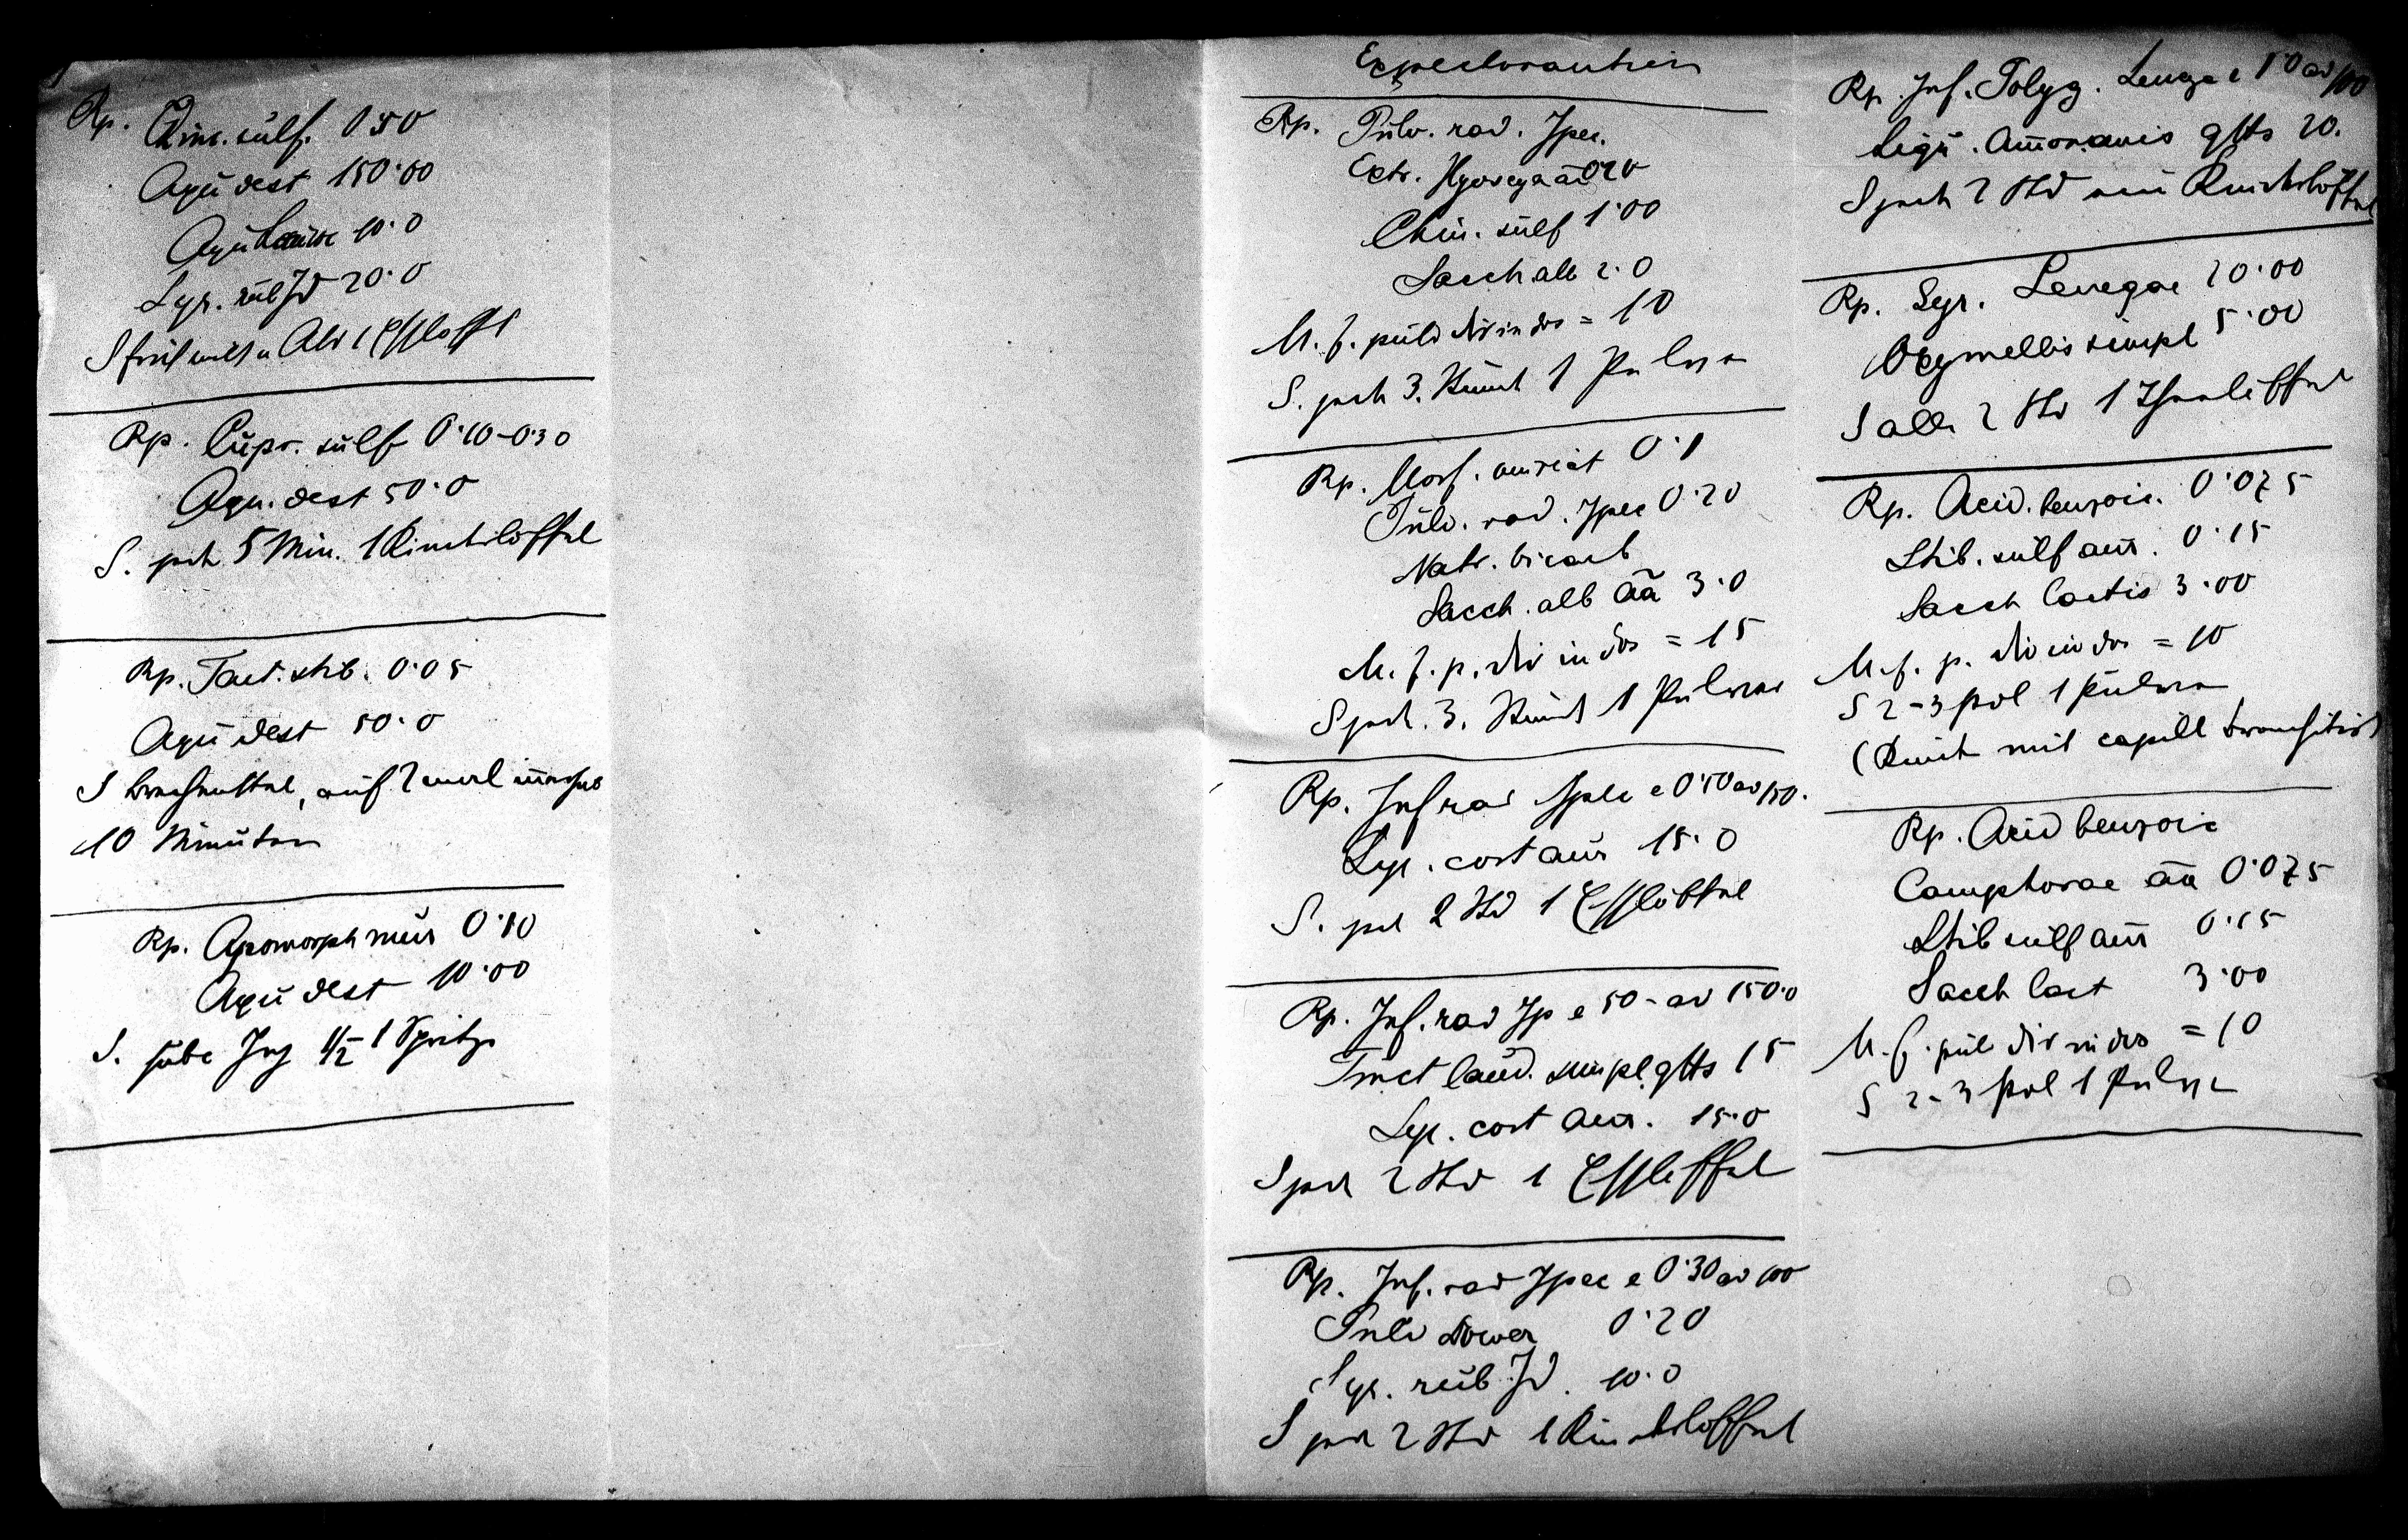 Rp. Zinc. sulf. 0·50
Aqu dest 150·00
Aqu 10·0
Syr. rub Jd 20·0
S früh und Abd 1 Esslöffl
Rp. Cupr. sulf 0·10-0·30
Aqu. dest 50·0
S. jede 5 Min. 1 Kinderlöffel
Rp. Tart. stib. 0·05
Aqu dest 50·0
S Brechmittel, auf 2 mal
10 Minuten
Rp. Apomorph mur 0·10
Aqu dest 10·00
S. subc Inj 1/2-1 Spritze
Expectorantien
Rp. Pulv. rad. Ipec.
Extr. Hyoscya āā 0·20
Chin. sulf 1·00
Sacch alb 2·0
M. f. pulv div in dos = 10
S. jede 3. Stund 1 Pulver
Rp. Morf. muriat 0·1
Pulv. rad. Ipec 0·20
Natr. bicarb
Sacch. alb āā 3·0
M. f. p. div in dos = 15
S jede. 3. Stund 1 Pulver
Rp. Inf rad Ipec e 0·50 ad 150.
Syr. cort aur 15·0
S. jed 2 Std 1 Esslöffel
Rp. Inf. rad Ip e 50- ad 150·0
Tinct laud. simpl. gtts 15
Syr. cort aur. 15·0
S jed 2 Std 1 Esslöffel
Rp. Inf. rad Ipec e 0·30 ad 100
Pulv Dower 0·20
Syr. rub Id. 10·0
S jed 2 Std 1 Kinderlöffel
Rp. Inf. Polyg. Senegae ad 100
Liqu. Ammon anis gtts 20.
S jede 2 Std ein Kinderlöffel
Rp. Syr. Senegae 20·00
Oxymellis simpl 5·00
S alle 2 Std 1 Theelöffel
Rp. Acid. benzoic. 0·075
Stib. sulf aur. 0·15
Sacch lactis 3·00
M. f. p. div in dos = 10
S 2-3 stdl 1 Pulver
(Kind mit capill bronchitis)
Rp. Acid benzoic
Camphorae āā 0·075
Stib sulf aur 0·15
Sacch lact 3·00
M. f. pul div in dos = 10
S 2-3 stdl 1 Pulver